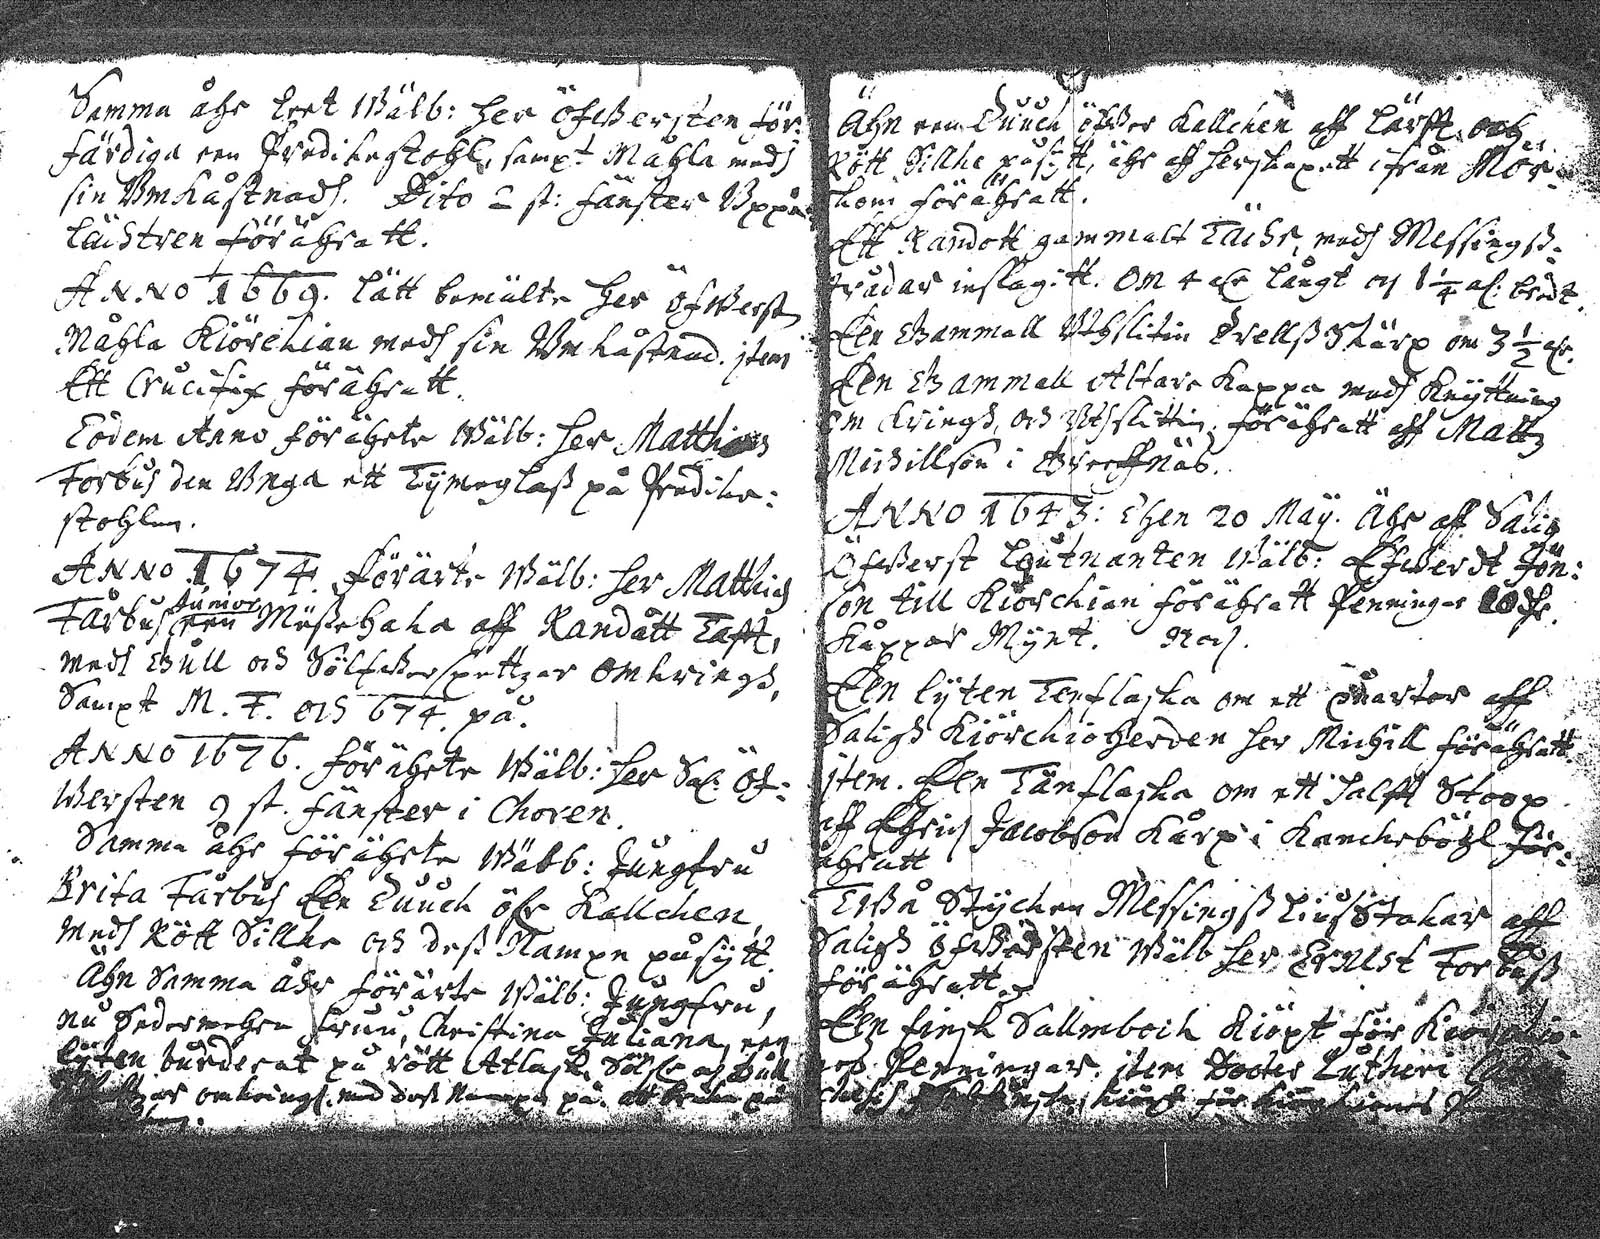 Samma åhr leet Wälb: her Öfwersten för:
färdiga een Predikestohl, sampt Måhla medh
sin Vmkåstnadh. Dito 2 st: fänster Vppå
Läichtren förähratt.
ANNO 1669. lätt bemälte her Öfwerst
Måhla Kiörckian medh sin Vmkåstnad. jtem
Ett Crucifix förähratt.
Eodem Anno förährte Wälb: her Matthias
Forbus den Vnga ett Tÿmeglass på Predike:
stohlen.
ANNO 1674. förärte Wälb: her Matthias
Junior
Farbus een Mässehaka aff Randått Tafft,
medh Gull och Sölfwerspettzar omkringh,
Sampt M. F. och 674. på.
ANNO 1676. förährte Wälb: her Sal: Öf:
Wersten 9 st. fänster i Choren.
Samma åhr förährte Wälb: Jungfru
Brita Farbus Een Duuck öfr Kallcken,
medh Rött Sillke och dess Nampn påsÿtt.
Ähn Samma åhr förärte Wälb: Jungfru,
nu Sedermehra fruu, Christina Juliana, een
lÿten burderat på rött Atlask, Sölfr och Gull
omkringh, med dess Nampn på, att bruka på
Ähn een Duuck öfwer Kallcken aff Lärfft och
Rött Sillke påsÿtt, ähr aff herskapett ifrån Mör:
kom förähratt.
Ett Randott gammalt Täckr, medh Messingss:
trådar inslagitt. Om 4 alr långt och 1 1/4 al: bredt.
Een Gammall Vthslitin Drellss Skärp om 3 1/2 alr.
Een Gammall Altare Kappa medh Knÿttning
om kringh, och Vthslittin, förähratt aff Matts
Michillson i Greffnäs.
ANNO 1643: Then 20 Maÿ. Ähr aff Salig
Öfwerst Leutnanten Wälb: Efwerdt Jön:
son till Kiörckian förähratt Penningar
Kåppar Mÿnt. Noch.
Een lÿten Tenflaska om ett Quarter aff
Saligh Kiörckioherden her Michill förähratt.
jtem. Een Tänflaska om ett halfft Stoop
aff Ehrich Jacobson Kårp i Kanckeböhl för:
ähratt
Twå Stÿcken Messingss Liusstakar aff
Saligh Öfwersten Wälb her Ernest Forbuss
förähratt.
Een finsk Sallmbock Kiöpt för Kiörckio:
nes Penningar. jtem Docter Lutheri
kiöpt för Kiörckiones